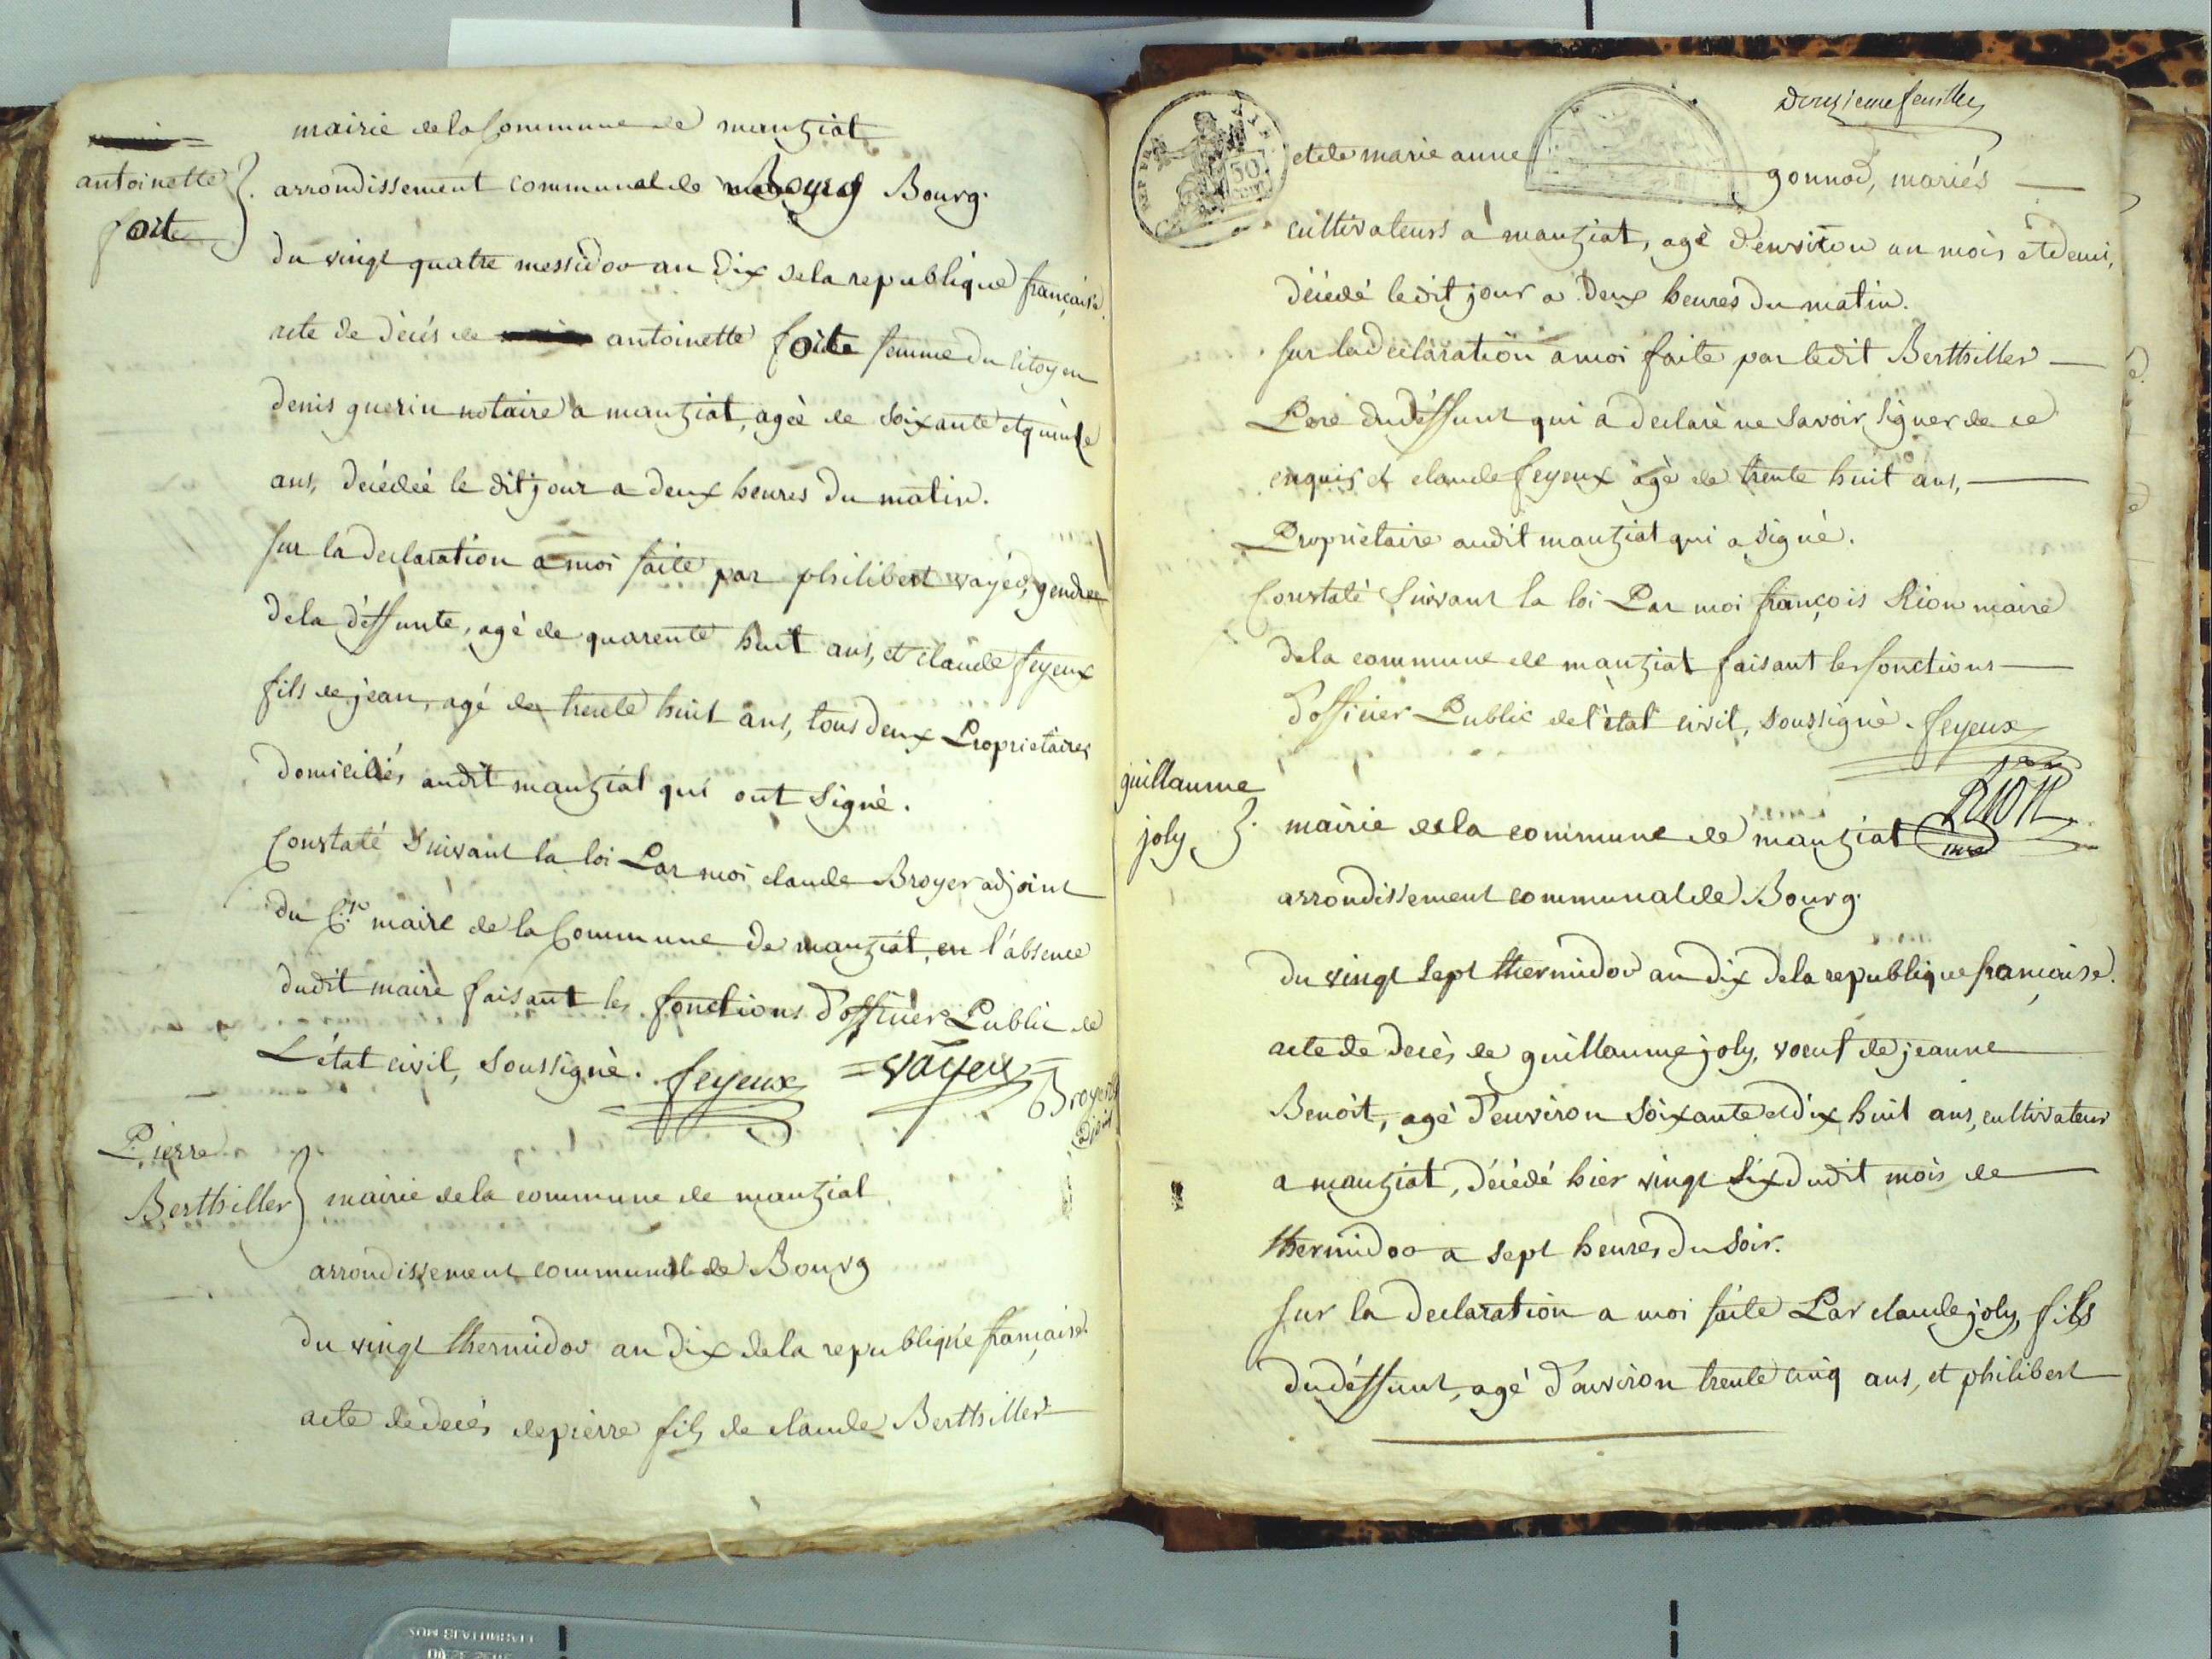 mairie de la Commune de manziat
antoinette
forte
arrondissement communal de Bourg Bourg.
du vingt quatre messidor an dix de la republique française.
acte de décés de antoinette forte femme du Citoyen
denis guerin notaire a manziat, agèe de soixante et quinze
ans, décédée le dit jour a deux heures du matin.
sur la declaration a moi faite par philibert vayeu, gendre
de la déffunte, agé de quarente huit ans, et claude feyeux
fils de jean, agé de trente huit ans, tous deux Proprietaires
domiciliés audit manziat qui ont signé.
Constaté Suivant la loi Par moi claude Broyer adjoint
du C.en maire de la Commune de manziat, en l'absence
dudit maire faisant les fonctions d'officier Public de
L'état civil, soussigné. feyeux = vayeu =
Broyer
adjoint
Pierre
Berthiller
mairie de la commune de manziat
arrondissement communal de Bourg
du vingt thermidor an dix de la republique française.
acte de decés de pierre fils de claude Berthiller
feuille
REP FRA
50
et de marie anne gonnod, mariés
cultivateurs à manziat, agé d'environ un mois et demi,
décédé le dit jour a deux heures du matin.
sur la declaration a moi faite par ledit Berthiller
Pere du déffunt qui a declaré ne savoir signer de ce
enquis et claude feyeux agé de trente huit ans,
Propriétaire audit manziat qui a signé.
Constaté Suivant la loi Par moi françois Rion maire
de la commune de manziat faisant les fonctions
d'officier Public de l'état civil, soussigné. feyeux
RION
guillaume
joly
mairie de la commune de manziat
arrondissement communal de Bourg.
du vingt sept thermidor an dix de la republique françoise.
acte de decès de guillaume joly, voeuf de jeanne
Benoit, agé d'environ soixante et dix huit ans, cultivateur
a manziat, décédé hier vingt six dudit mois de
thermidor a sept heures du soir.
sur la declaration a moi faite Par claude joly, fils
du déffunt, agé d'environ trente cinq ans, et philibert